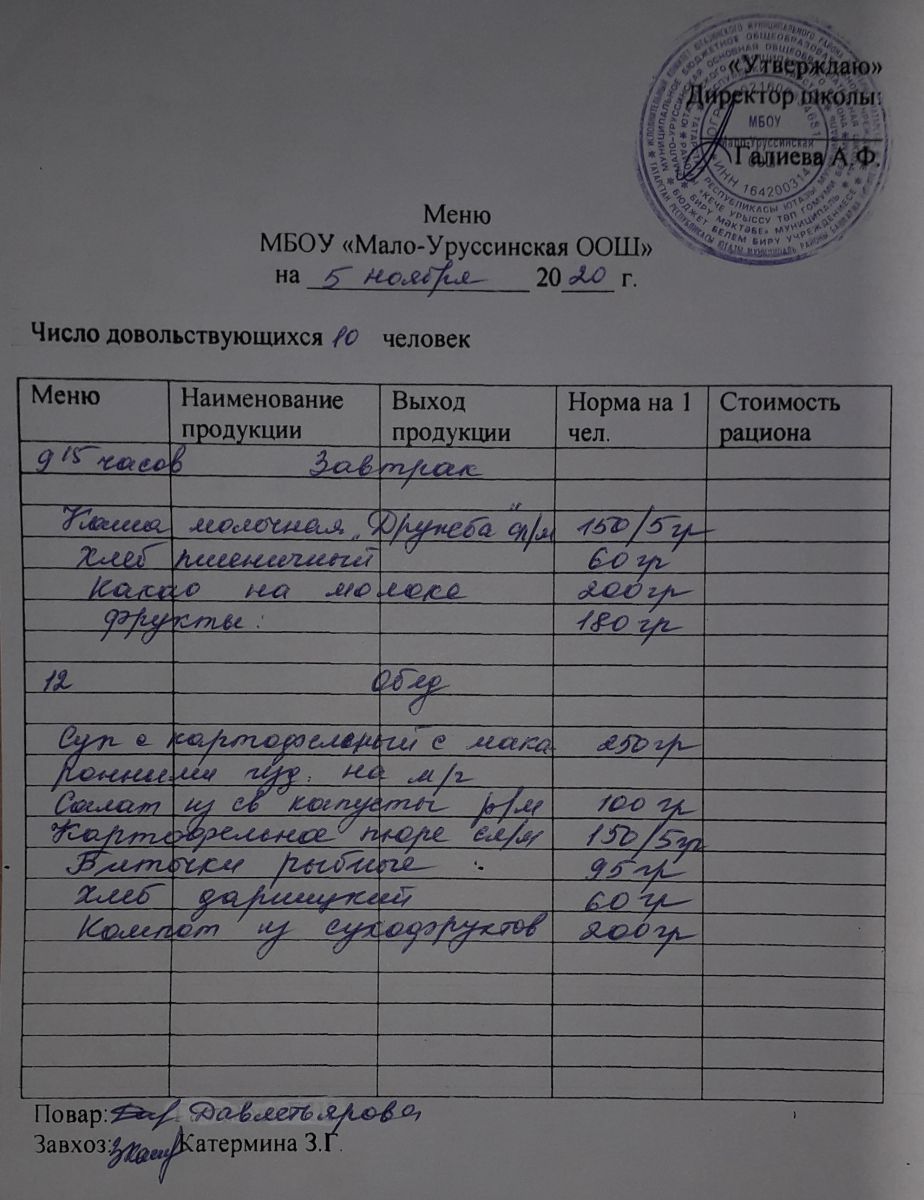 «Утверждаю»
Директор школы:
МБОУ
Мало-Уруссинская
Галиева А.Ф.
Меню
МБОУ «Мало-Уруссинская ООШ»
на 5 ноября 2020 г.
Число довольствующихся 10 человек
Меню Наименование продукции Выход продукции Норма на 1 чел. Стоимость рациона
9 15 часов Завтрак
Каша молочная „Дружба" с/м 150/5гр
Хлеб пшеничный 60гр
Какао на молоке 200гр
Фрукты: 180гр
12 Обед
Суп с картофельный с мака 250гр
ронними изд. на м/г
Салат из св капусты р/м 100гр
Картофельное пюре сл/м 150/5гр
Биточки рыбные 95гр
Хлеб дарницкий 60гр
Компот из сухофруктов 200гр
Повар: Давлетьярова
Завхоз: Катермина З.Г.